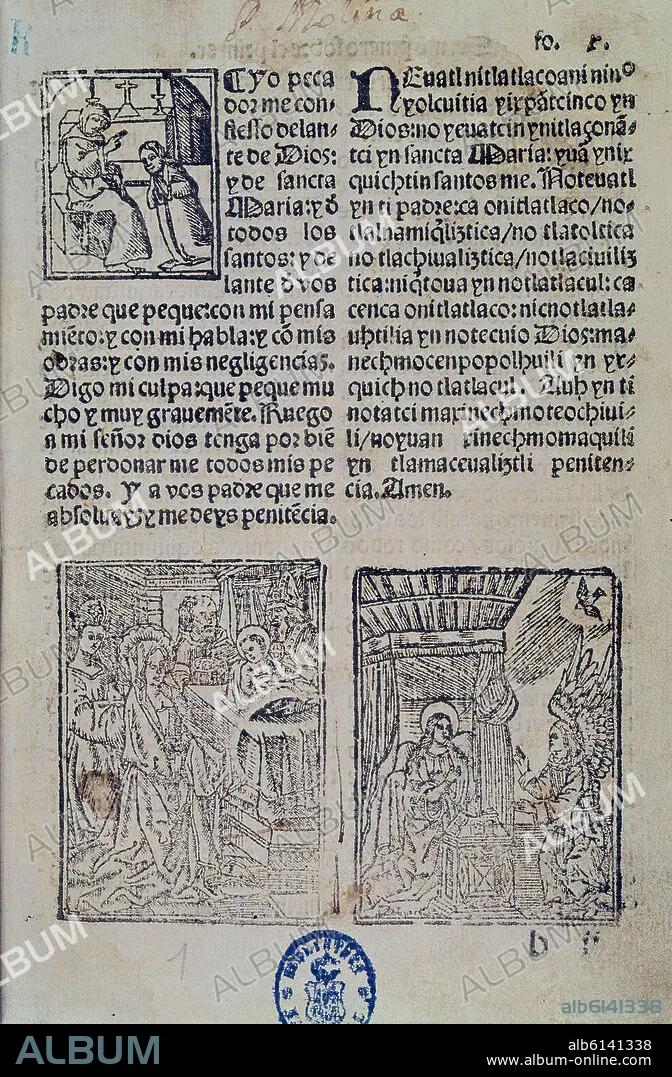 P. Molina.
fo. x.
Yo peca
dor me con-
fiesso delan-
te de Dios:
y de sancta
Maria: y d̃
todos los
santos: y de
lante d̃ vos
padre que peque: con mi pensa
miẽto: y con mi habla: y cõ mis
obras: y con mis negligencias.
Digo mi culpa: que peque mu
cho y muy grauemẽte. Ruego
a mi señor dios tenga por biẽ
de perdonar me todos mis pe
cados. Y a vos padre que me
absoluays y me deys penitẽcia.
NEuatl nitlatlacoani nino
yolcuitia yixpãtcinco yn
Dios: no yeuatcin ynitlaçonã-
tci yn sancta Maria: yuã ynix
quichtin santos me. Noteuatl
yn ti padre: ca onitlatlaco/no-
tlalnamiq̃liztica/no tlatoltica
no tlachiualiztica/notlaciuiliz
tica: niq̃toua yn notlatlacul: ca
cenca onitlatlaco: nicnotlatla-
uhtilia yn notecuio Dios: ma-
nechmocenpopolhuili yn yx-
quich no tlatlacul. Auh yn ti
notatci maxinechmoteochiui-
li/noyuan xinechmomaquili
yn tlamaceualiztli peniten-
cia. Amen.
b ij
1
ALBUM
alb6141338
ALBUM
alb6141338
www.album-online.com